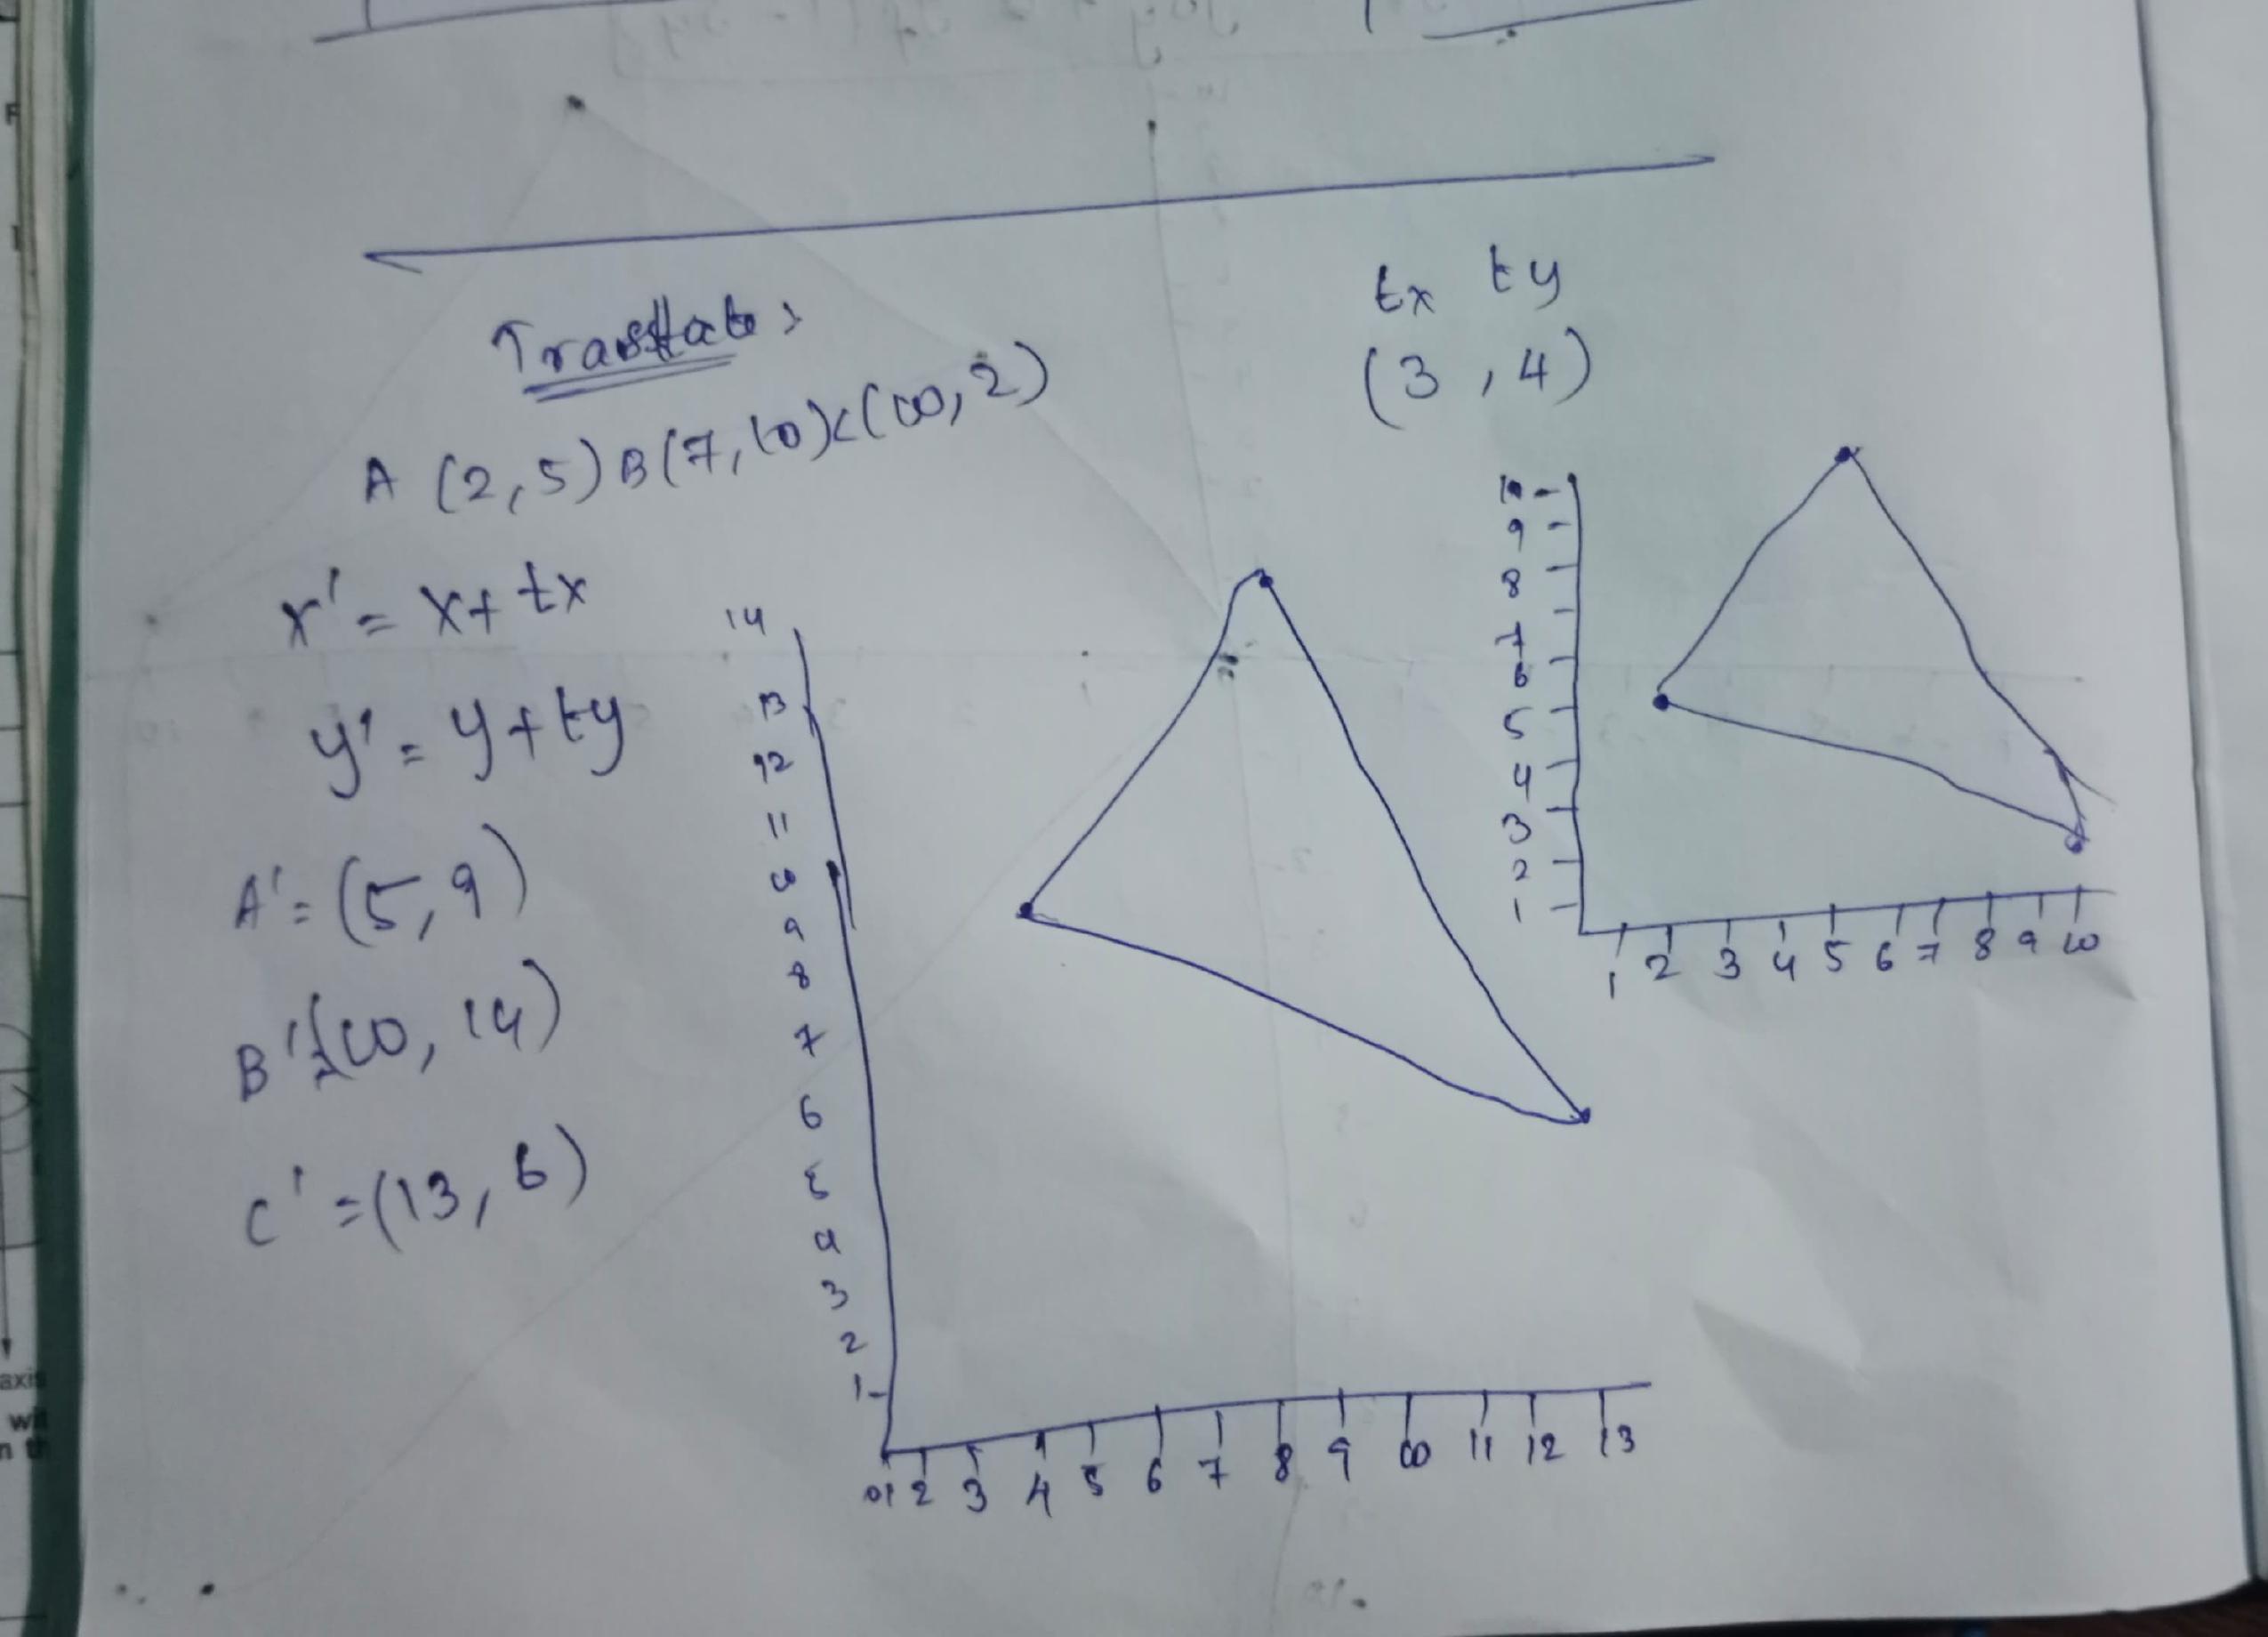 tx ty
(3 , 4)
A (2,5) B(7,10) C(10,2)
x' = x + tx
y' = y + ty
A' = (5,9)
B' = (10, 14)
C' = (13, 6)
14
13
12
11
10
9
8
7
6
5
4
3
2
1
01 2 3 4 5 6 7 8 9 10 11 12 13
10
9
8
7
6
5
4
3
2
1
1 2 3 4 5 6 7 8 9 10
axis